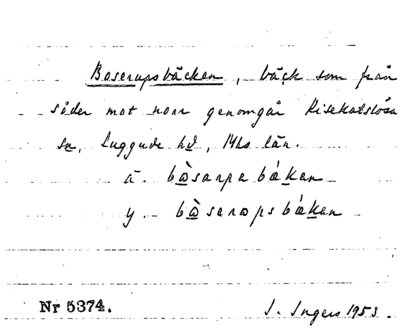 Boserupsbäcken, bäck som från
söder mot norr genomgår Risekatslösa
sn, Luggude hd, Mhs län.
ä. bòsarpabákan
y. bòsarəpsbákan
Nr 5374.
I. Ingers 1953.